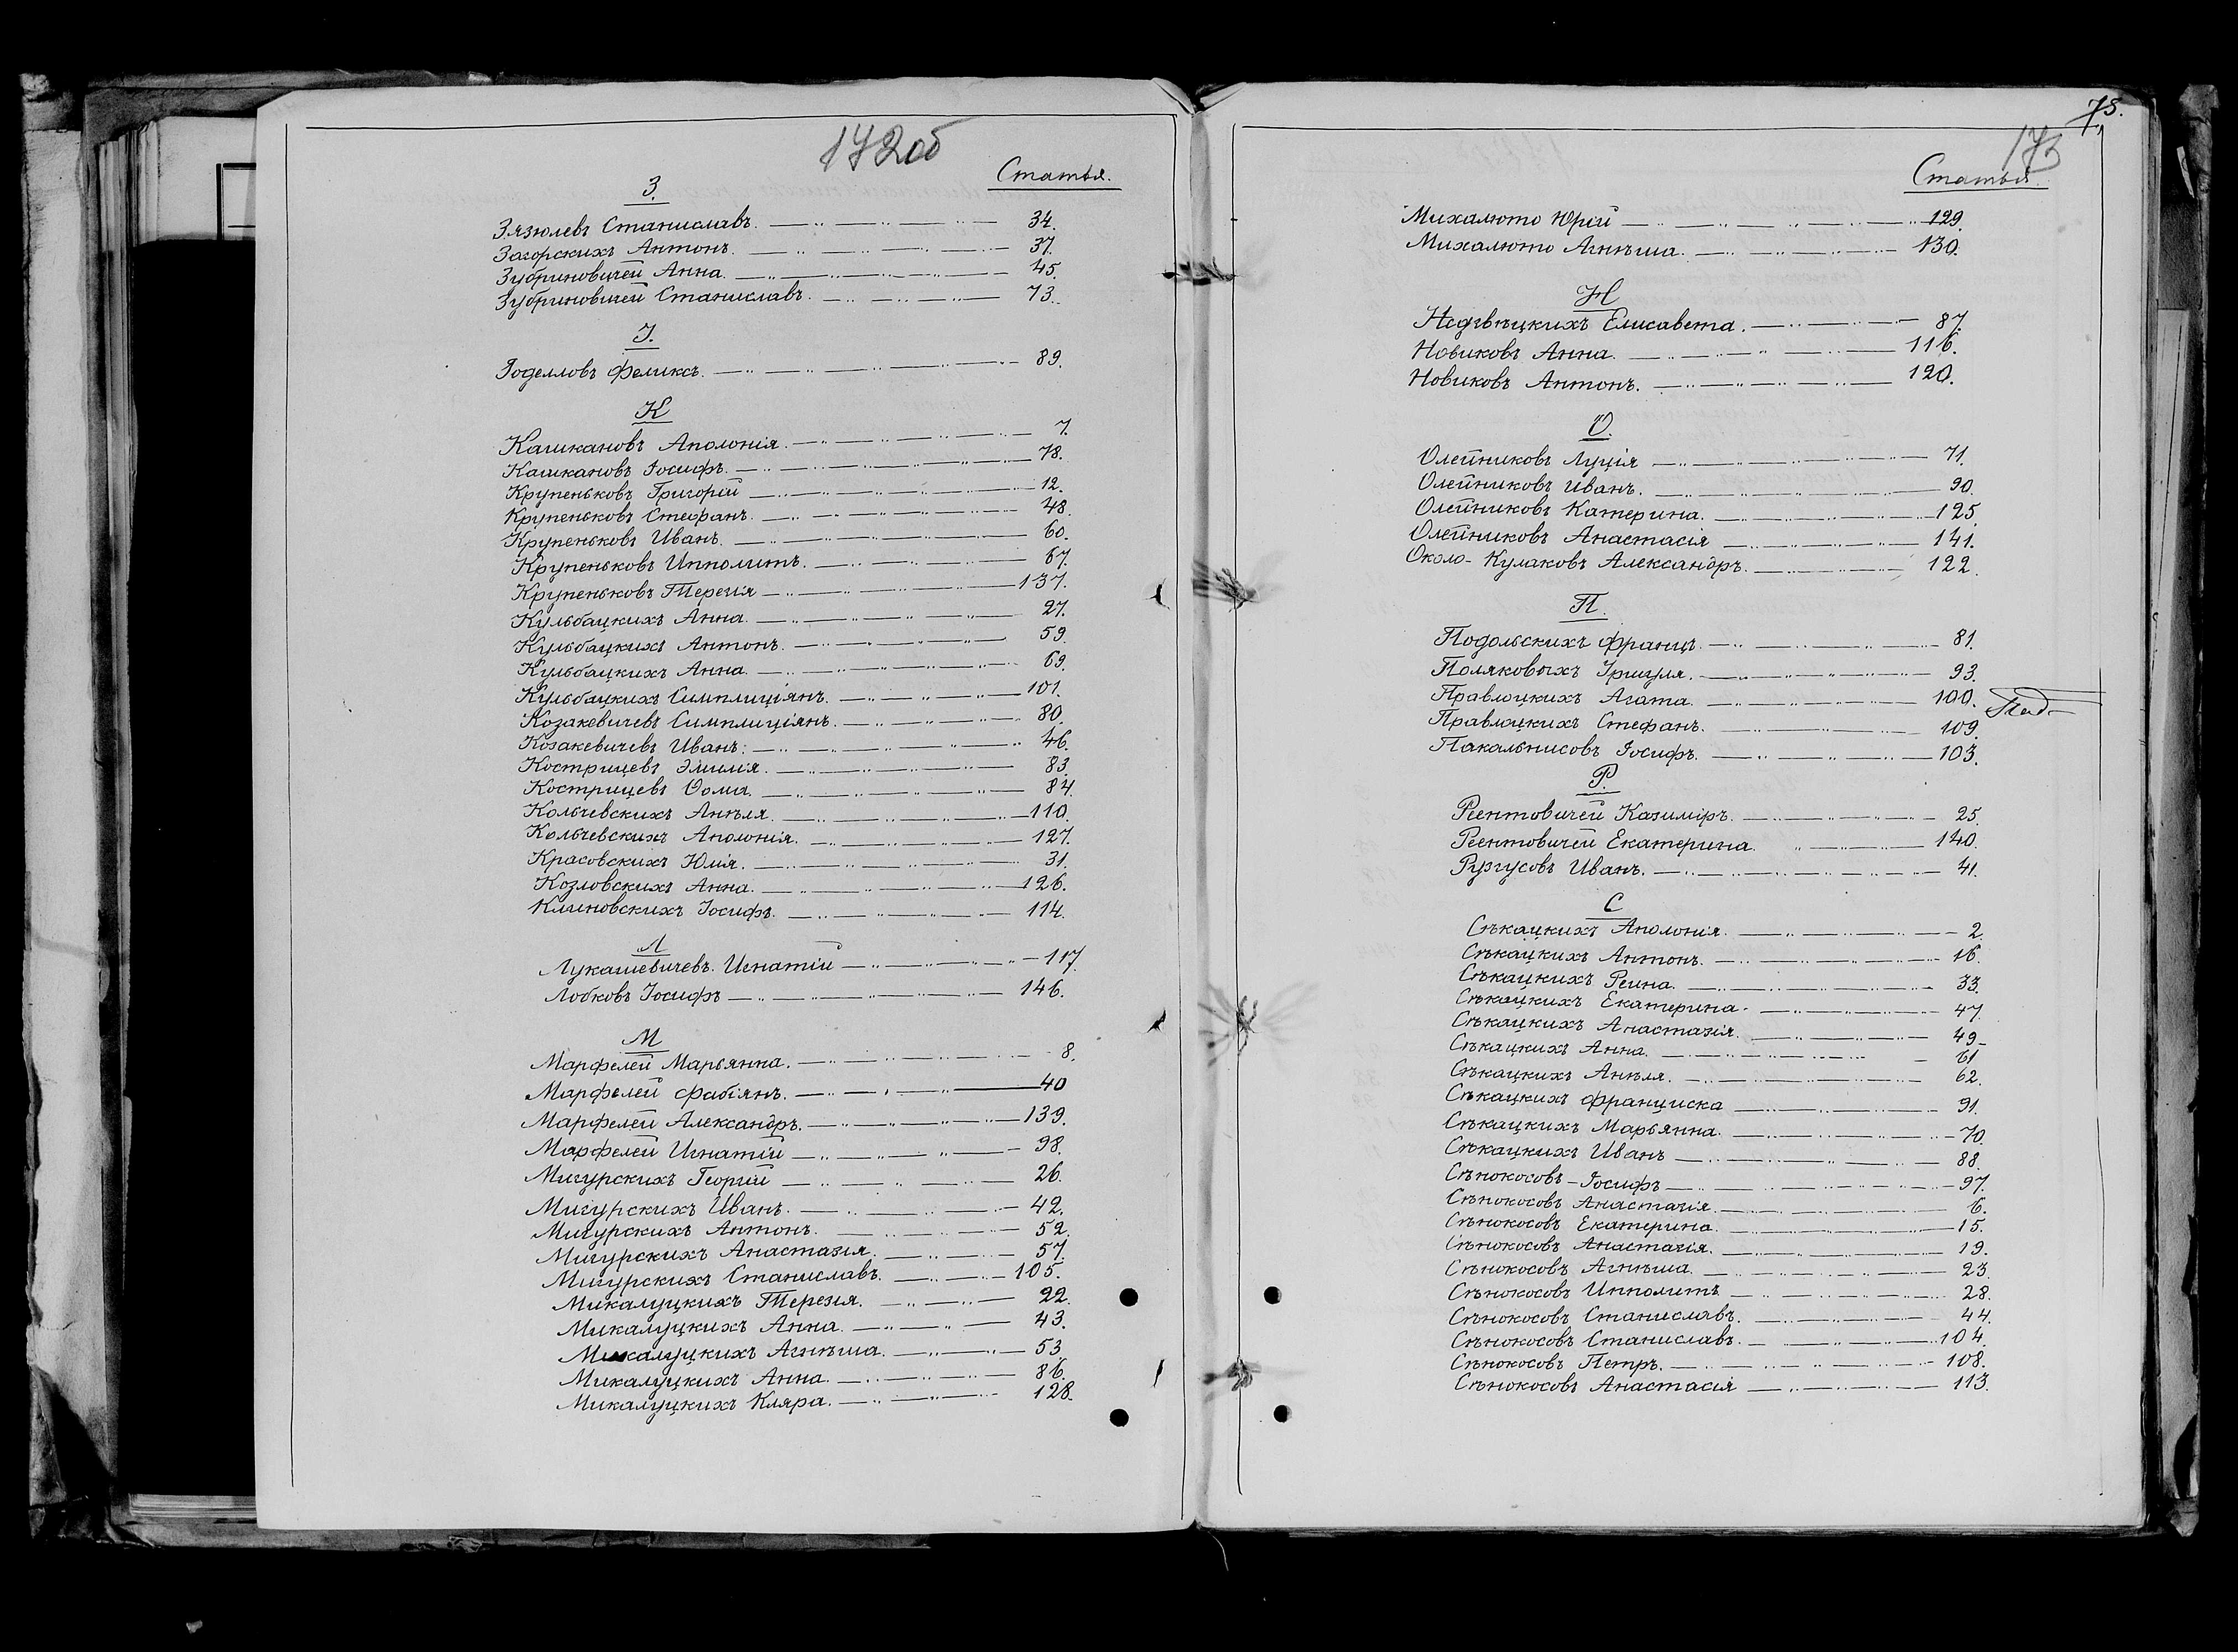 172об
Статья.
З.
Зязюлевъ Станиславъ. 34.
Загорскихъ Антонъ. 37.
Зубриновичей Анна. 45.
Зубриновичей Станиславъ. 73.
І.
Іоделловъ Феликсъ. 89.
К
Кашкановъ Аполонія. 7.
Кашкановъ Іосифъ. 78.
Крупеньковъ Григорій 12.
Крупеньковъ Стефанъ. 48.
Крупеньковъ Иванъ. 60.
Крупеньковъ Ипполитъ. 67.
Крупеньковъ Терезія 137.
Кульбацкихъ Анна. 27.
Кульбацкихъ Антонъ. 59.
Кульбацкихъ Анна. 69.
Кульбацкихъ Симплиціянъ. 101.
Козакевичевъ Симплиціянъ. 80.
Козакевичевъ Иванъ. 46.
Кострицевъ Эмилія. 83.
Кострицевъ Ѳома. 84.
Кольчевскихъ Анѣля. 110.
Кольчевскихъ Аполонія. 127.
Красовскихъ Юлія. 31.
Козловскихъ Анна. 126.
Климовскихъ Іосифъ. 114.
Л
Лукашевичевъ Игнатій 117.
Лобковъ Іосифъ 146.
М
Марфелей Марьянна. 8.
Марфелей Фабіянъ. 40
Марфелей Александръ. 139.
Марфелей Игнатій 98.
Мигурскихъ Георгій 26.
Мигурскихъ Иванъ. 42.
Мигурскихъ Антонъ. 52.
Мигурскихъ Анастазія. 57.
Мигурскихъ Станиславъ. 105.
Микалуцкихъ Терезія. 22.
Микалуцкихъ Анна. 43.
Микалуцкихъ Агнѣша. 53
Микалуцкихъ Анна. 86.
Микалуцкихъ Кляра. 128.
75.
173
Статья.
Михалюто Юрій 129.
Михалюто Агнѣша. 130.
Н
Недзвѣцкихъ Елисавета. 87.
Новиковъ Анна. 116.
Новиковъ Антонъ. 120.
О.
Олейниковъ Луція 71.
Олейниковъ Иванъ. 90.
Олейниковъ Катерина. 125.
Олейниковъ Анастасія 141.
Около-Кулаковъ Александръ. 122.
П.
Подольскихъ Францъ. 81.
Поляковыхъ Уршуля. 93.
Правлоцкихъ Агата. 100.
Правлоцкихъ Стефанъ. 109.
Пакальнисовъ Іосифъ. 103.
Р.
Реентовичей Казиміръ. 25.
Реентовичей Екатерина. 140.
Ругусовъ Иванъ. 41.
С
Сѣкацкихъ Аполонія. 2.
Сѣкацкихъ Антонъ. 16.
Сѣкацкихъ Реина. 33.
Сѣкацкихъ Екатерина. 47.
Сѣкацкихъ Анастазія. 49.
Сѣкацкихъ Анна. 61
Сѣкацкихъ Анѣля. 62.
Сѣкацкихъ Франциска 91.
Сѣкацкихъ Марьянна. 70.
Сѣкацкихъ Иванъ 88.
Сѣнокосовъ Іосифъ 97.
Сѣнокосовъ Анастазія. 6.
Сѣнокосовъ Екатерина. 15.
Сѣнокосовъ Анастазія. 19.
Сѣнокосовъ Агнѣша. 23.
Сѣнокосовъ Ипполитъ 28.
Сѣнокосовъ Станиславъ. 44.
Сѣнокосовъ Станиславъ. 104.
Сѣнокосовъ Петръ. 108.
Сѣнокосовъ Анастасія 113.